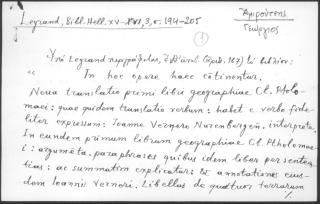 Legrand, Bibl. Hell. XV-XVI, 3, σ. 194-205
Ἀμιρούτσης
Γεώργιος
Ὑπὸ Legrand περιγράφεται, (ἀριθ. 167) τὸ βιβλίον:
" In hoc opere haec cōtinentur.
Noua translatio primi libri geographiae Cl. Ptholo-
maei: quae quidem translatio verbum: habet e verbo fide-
liter expresum: Ioanne Vernero Nurenbergeñ. interprete.
In eundem primum librum geographiae Cl. Ptholomae-
i: argumēta, paraphrases quibus idem liber per senten-
tias: ac summatim explicatur: & annotationes eius-
dem Ioannis Verneri. Libellus de quattuor terrarum